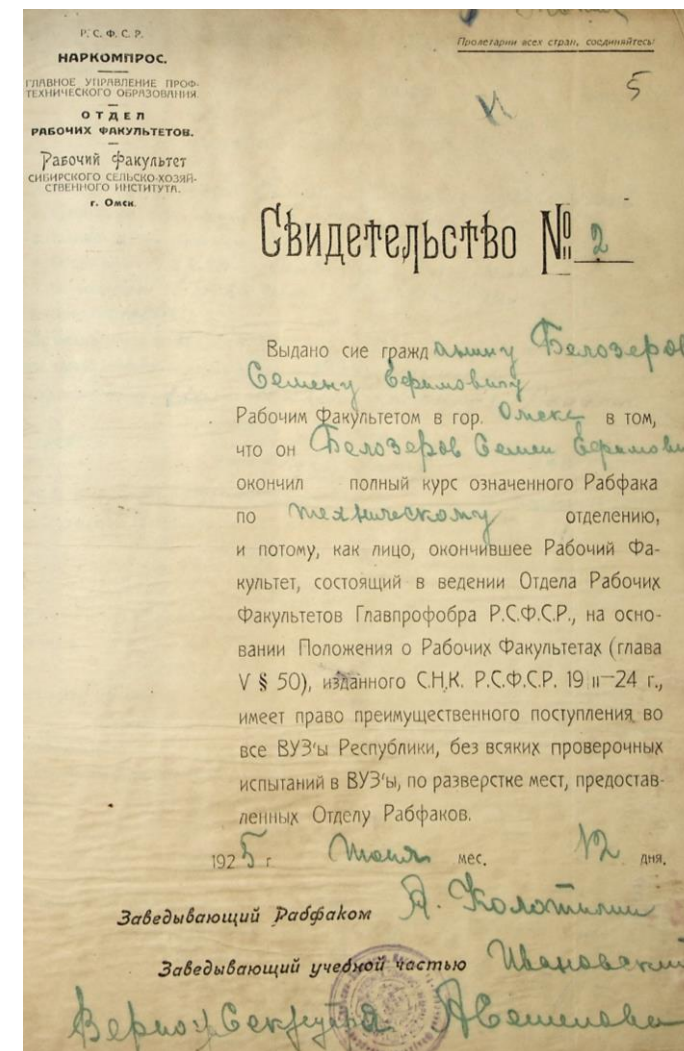 Р. С. Ф. С. Р.
НАРКОМПРОС.
ГЛАВНОЕ УПРАВЛЕНИЕ ПРОФ-
ТЕХНИЧЕСКОГО ОБРАЗОВАНИЯ.
ОТДЕЛ
РАБОЧИХ ФАКУЛЬТЕТОВ.
Рабочий Факультет
СИБИРСКОГО СЕЛЬСКО-ХОЗЯЙ-
СТВЕННОГО ИНСТИТУТА.
г. Омск.
Пролетарии всех стран, соединяйтесь!
5
Свидетельство № 2
Выдано сие гражданину Белозеров
Семену Ефимовичу
Рабочим Факультетом в гор. Омске в том,
что он Белозеров Семен Ефимови
окончил полный курс означенного Рабфака
по техническому отделению,
и потому, как лицо, окончившее Рабочий Фа-
культет, состоящий в ведении Отдела Рабочих
Факультетов Главпрофобра Р.С.Ф.С.Р., на осно-
вании Положения о Рабочих Факультетах (глава
V § 50), изданного С.Н.К. Р.С.Ф.С.Р. 19 II—24 г.,
имеет право преимущественного поступления во
все ВУЗ'ы Республики, без всяких проверочных
испытаний в ВУЗ'ы, по разверстке мест, предостав-
ленных Отделу Рабфаков.
1925 г. Июня мес. 12 дня.
Заведывающий Рабфаком А. Колотилин
Заведывающий учебной частью Ивановский
Верно: Секретарь